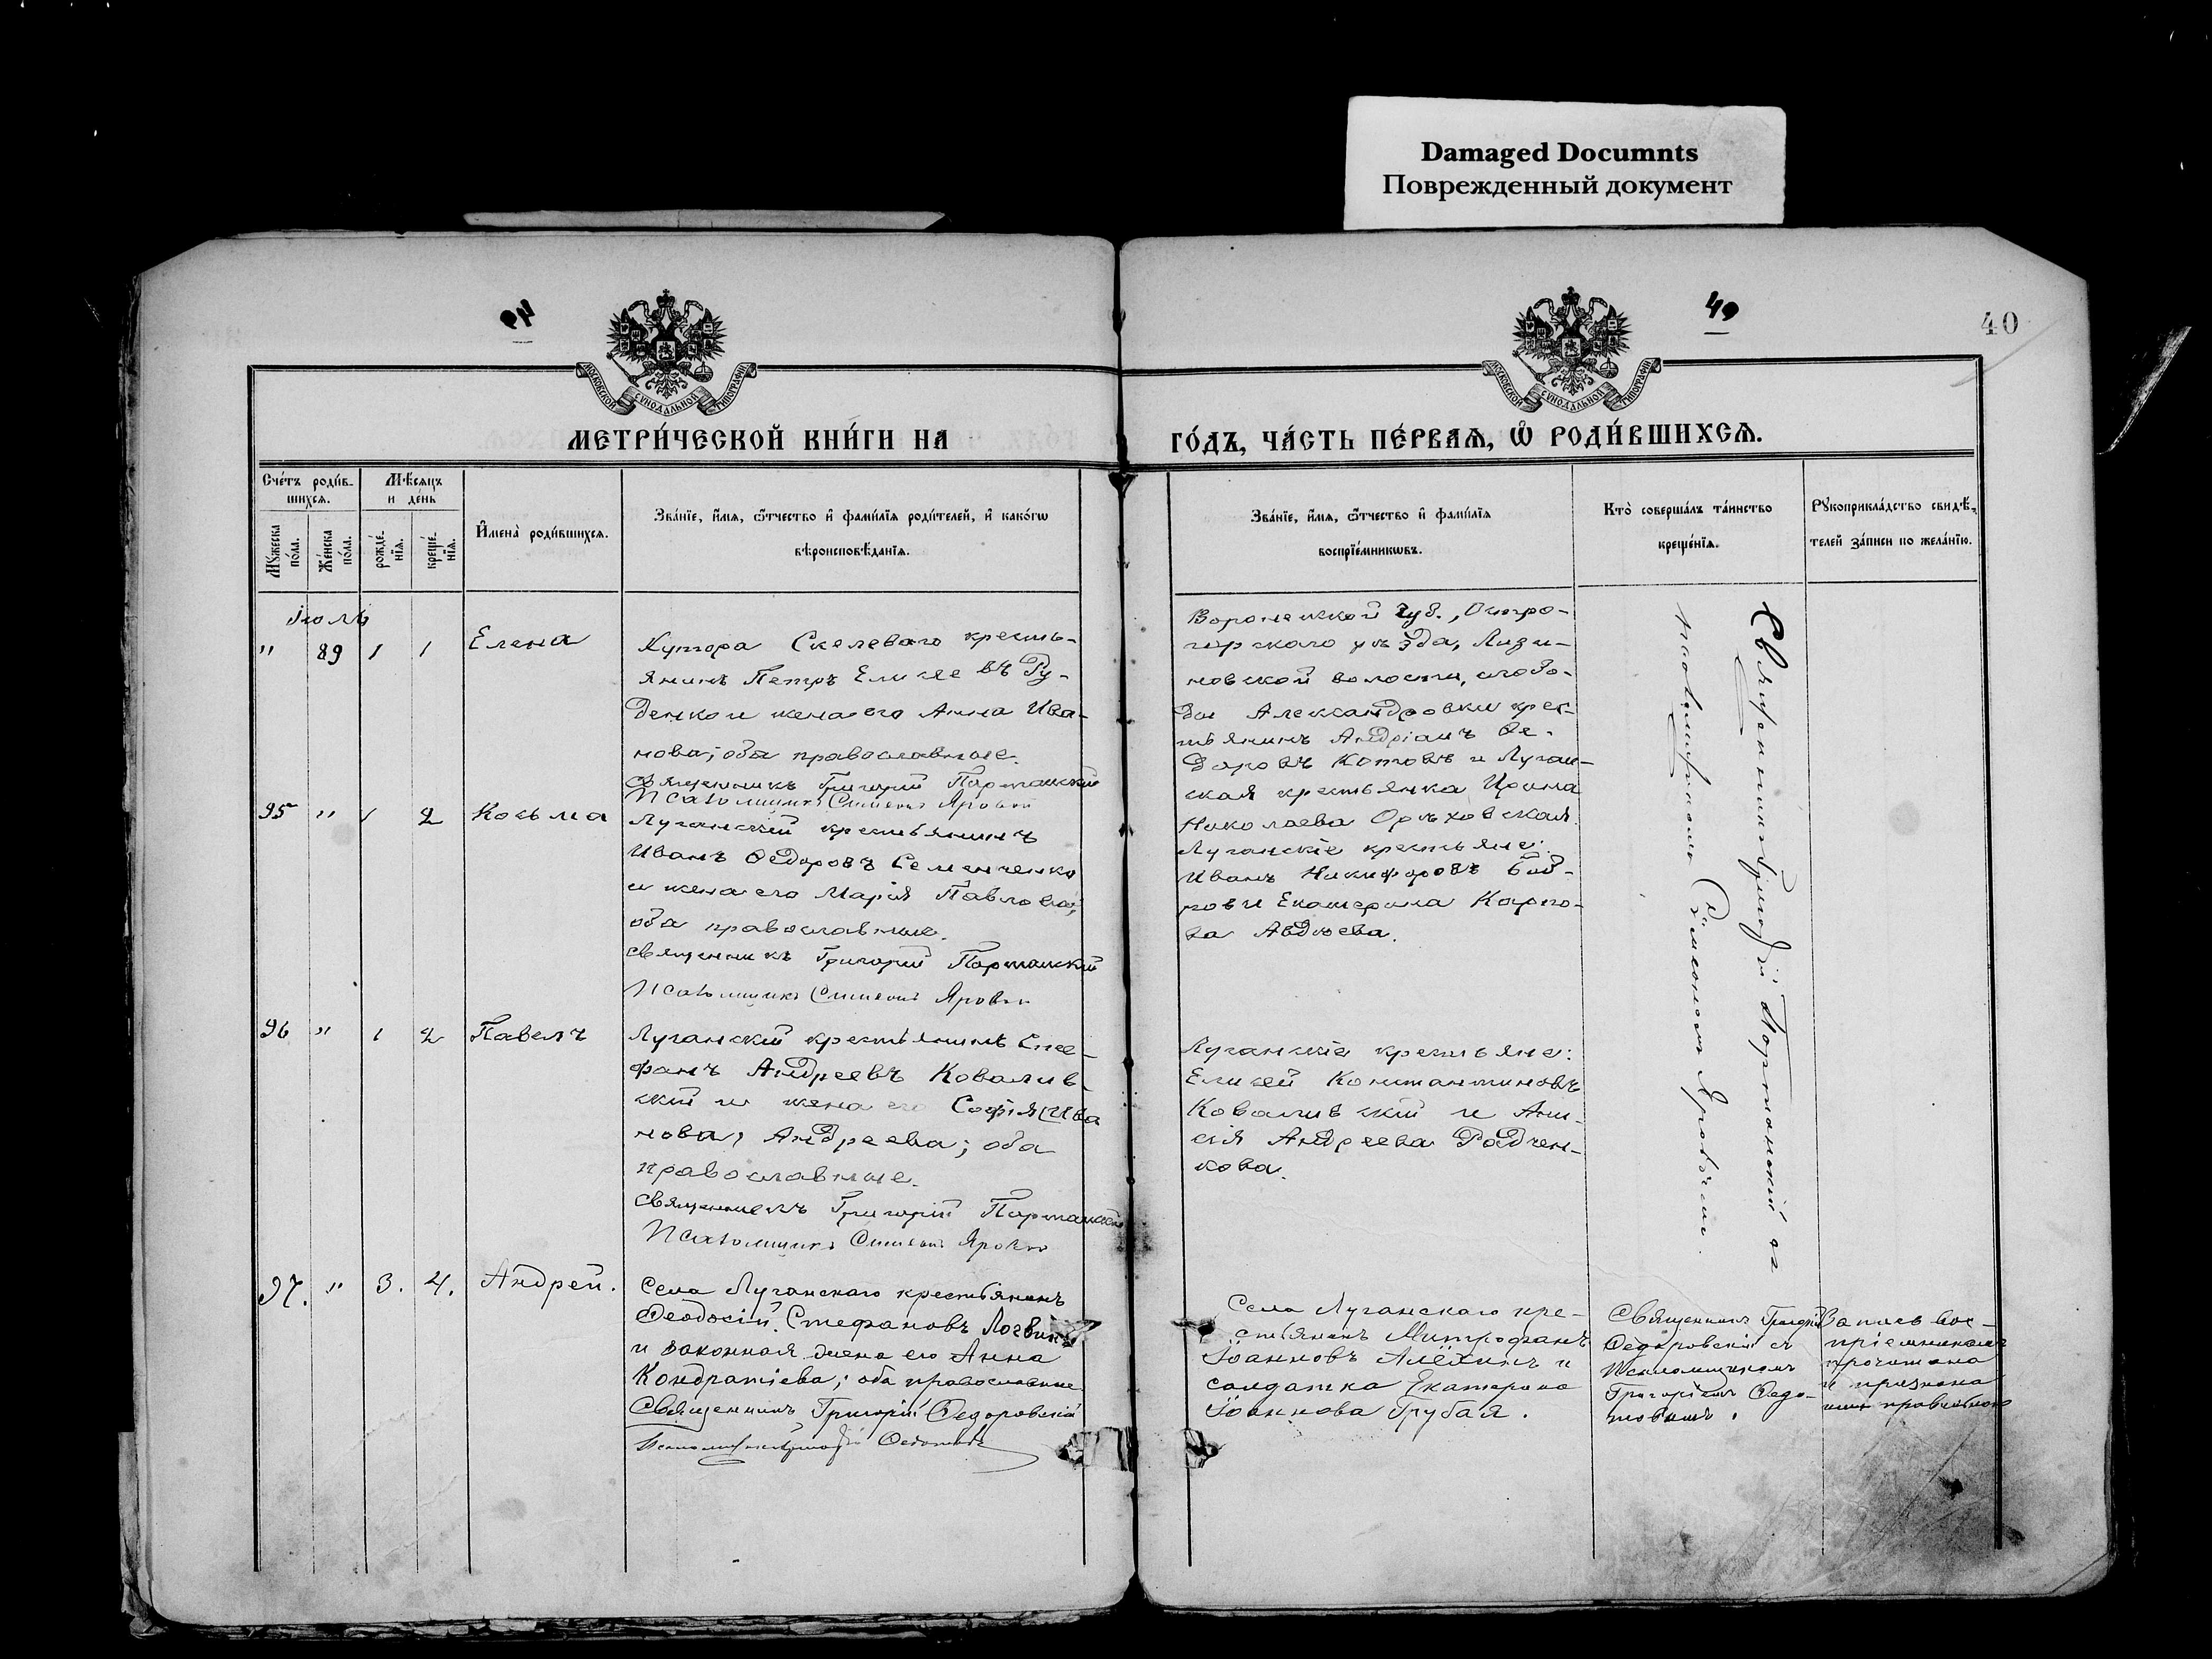 Damaged Documnts
Поврежденный документ
49
40
МОСКОВСКОЙ СУНОДАЛЬНОЙ ТИПОГРАФІИ
МОСКОВСКОЙ СУНОДАЛЬНОЙ ТИПОГРАФІИ
МЕТРИ́ЧЕСКОЙ КНИ́ГИ НА
ГО́ДЪ, ЧА́СТЬ ПЕ́РВАѦ, Ѡ РОДИ́ВШИХСѦ.
Сче́тъ роди́в-
шихсѧ.
Мꙋ́жеска по́ла.
Же́нска по́ла.
Мѣ́сяцъ
и де́нь
рожде́нїѧ.
креще́нїѧ.
И҆мена̀ роди́вшихсѧ.
Зва́нїе, и҆́мѧ, ѻ҆́тчество и҆ фами́лїѧ роди́телей, и҆ како́гѡ
вѣроисповѣ́данїѧ.
Зва́нїе, и҆́мѧ, ѻ҆́тчество и҆ фами́лїѧ
воспрїе́мникѡвъ.
Кто̀ соверша́лъ та́инство
креще́нїѧ.
Рꙋкоприкла́дство свидѣ́-
телей за́писи по жела́нїю.
Іюль
" 89 1 1 Елена
Хутора Скелеваго кресть-
янинъ Петръ Елисеевъ Ру-
денко и жена его Анна Ива-
нова; оба православные.
Священникъ Григорій Портанскій
Псаломщикъ Симеонъ Яровой
Воронежской губ., Острогор-
жского уѣзда, Лизи-
новской волости, слобо-
ды Александровки крес-
тьянинъ Андріанъ Ѳе-
доровъ Котовъ и Луган-
ская крестьянка Ирина
Николаева Орѣховская.
95 " 1 2 Косьма
Луганскій крестьянинъ
Иванъ Ѳедоровъ Семенченко
и жена его Марія Павлова;
оба православные.
Священникъ Григорій Портанскій
Псаломщикъ Симеонъ Яровой
Луганскіе крестьяне:
Иванъ Никифоровъ
и Екатерина Карпо-
ва Авдюева.
96 " 1 2 Павелъ
Луганскій крестьянинъ Сте-
фанъ Андреевъ Ковалив-
скій и жена его Софія (Ива
нова) Андреева; оба
православные.
Священникъ Григорій Портанскій
Псаломщикъ Симеонъ Яровой
Луганскіе крестьяне:
Елисей Константиновъ
Коваливскій и Ани-
сія Андреева Радчен-
кова.
Священникъ Григорій Портанскій съ
псаломщикомъ Симеономъ Яровымъ.
97. " 3. 4. Андрей.
Села Луганскаго крестьянинъ
Ѳеодосій Стефановъ
и законная жена его Анна
Кондратіева; оба православные
Священникъ Григорій Ѳедоровскій
Псаломщикъ Григорій Ѳедотовъ
Села Луганскаго кре-
стьянинъ Митрофанъ
Іоанновъ Алёхинъ и
солдатка Екатерина
Іоаннова Грубая.
Священникъ Григорій
Ѳедоровскій съ
псаломщикомъ
Григоріемъ Ѳедо-
товымъ.
Запись вос-
пріемникомъ
прочитана
и признана
правильною